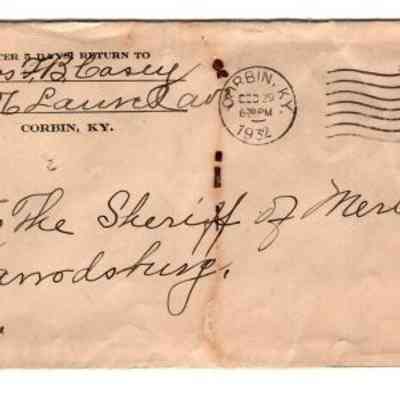 TER 5 DAYS RETURN TO
s F B Casey
Laurel av
CORBIN, KY.
CORBIN, KY.
DEC 29
6-PM
1932
The Sheriff of Mer
arrodsburg,